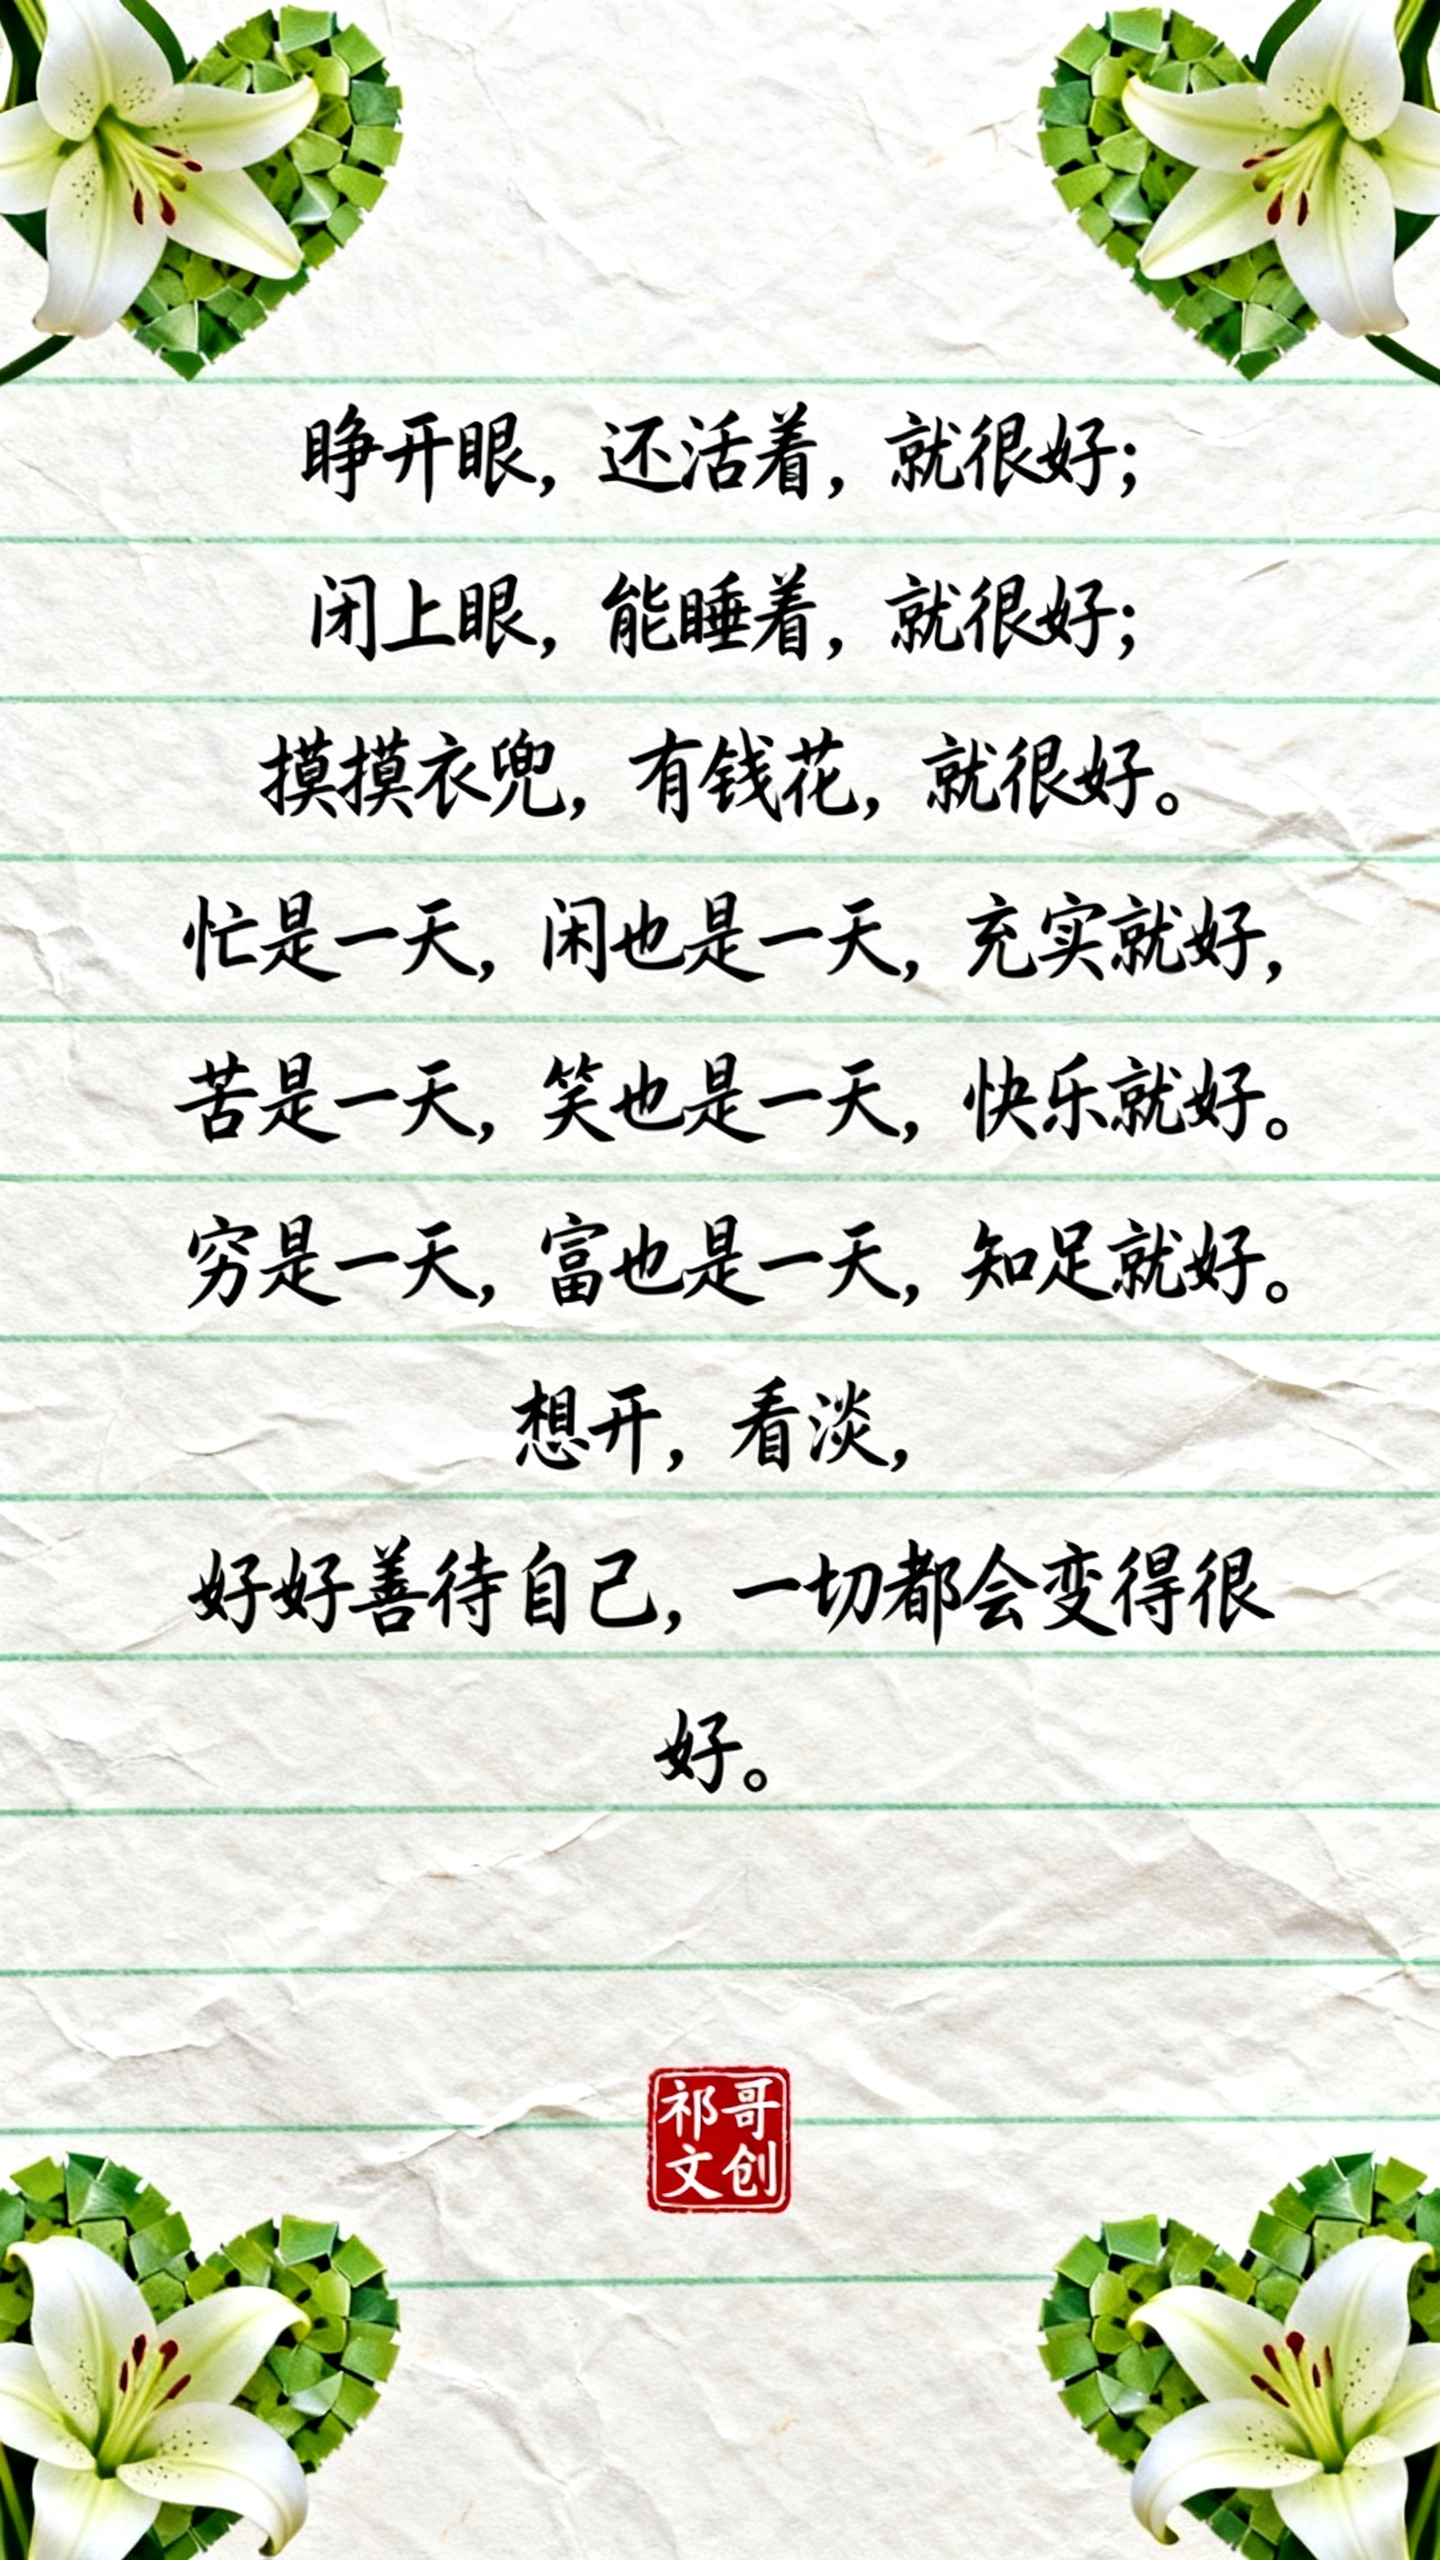 睁开眼，还活着，就很好；
闭上眼，能睡着，就很好；
摸摸衣兜，有钱花，就很好。
忙是一天，闲也是一天，充实就好，
苦是一天，笑也是一天，快乐就好。
穷是一天，富也是一天，知足就好。
想开，看淡，
好好善待自己，一切都会变得很
好。
祁哥
文创